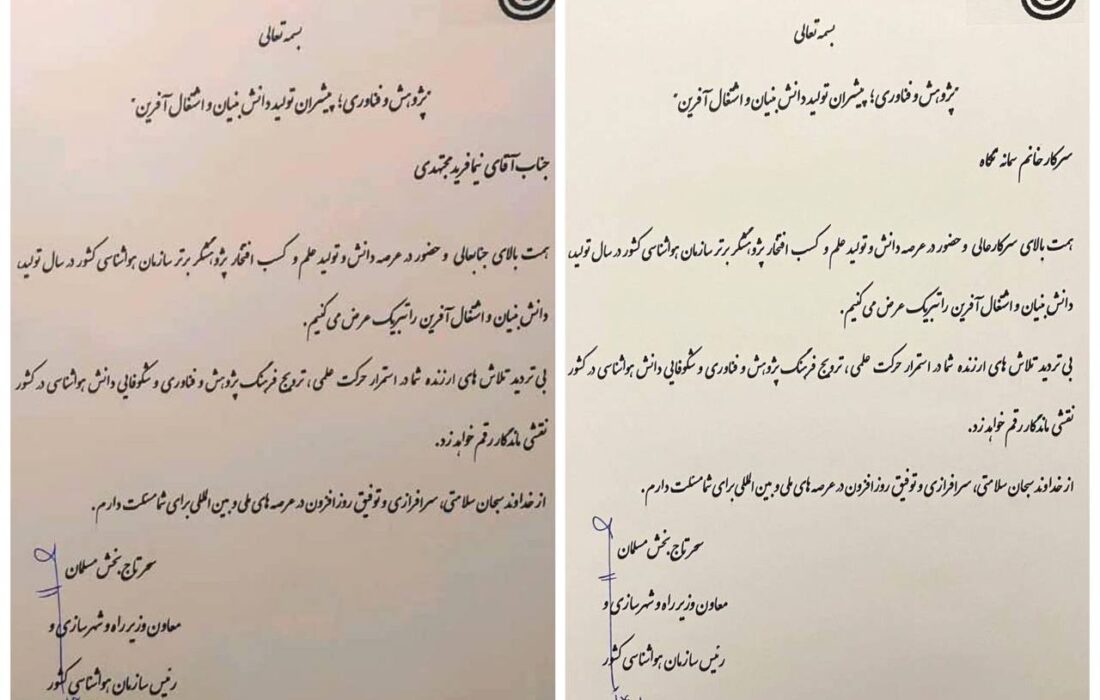 بسمه تعالی
"پژوهش و فناوری؛ پیشران تولید دانش بنیان و اشتغال آفرین"
جناب آقای نیما فرید مجتهدی
همت بالای جنابعالی و حضور در عرصه دانش و تولید علم و کسب افتخار پژوهشگر برتر سازمان هواشناسی کشور در سال تولید،
دانش بنیان و اشتغال آفرین را تبریک عرض می کنیم.
بی تردید تلاش های ارزنده شما در استمرار حرکت علمی، ترویج فرهنگ پژوهش و فناوری و شکوفایی دانش هواشناسی در کشور
نقشی ماندگار رقم خواهد زد.
از خداوند سبحان سلامتی، سرافرازی و توفیق روزافزون در عرصه های ملی و بین المللی برای شما مسئلت دارم.
سحر تاج بخش مسلمان
معاون وزیر راه و شهرسازی و
رئیس سازمان هواشناسی کشور
بسمه تعالی
"پژوهش و فناوری؛ پیشران تولید دانش بنیان و اشتغال آفرین"
سرکار خانم سمانه نگاه
همت بالای سرکارعالی و حضور در عرصه دانش و تولید علم و کسب افتخار پژوهشگر برتر سازمان هواشناسی کشور در سال تولید،
دانش بنیان و اشتغال آفرین را تبریک عرض می کنیم.
بی تردید تلاش های ارزنده شما در استمرار حرکت علمی، ترویج فرهنگ پژوهش و فناوری و شکوفایی دانش هواشناسی در کشور
نقشی ماندگار رقم خواهد زد.
از خداوند سبحان سلامتی، سرافرازی و توفیق روزافزون در عرصه های ملی و بین المللی برای شما مسئلت دارم.
سحر تاج بخش مسلمان
معاون وزیر راه و شهرسازی و
رئیس سازمان هواشناسی کشور